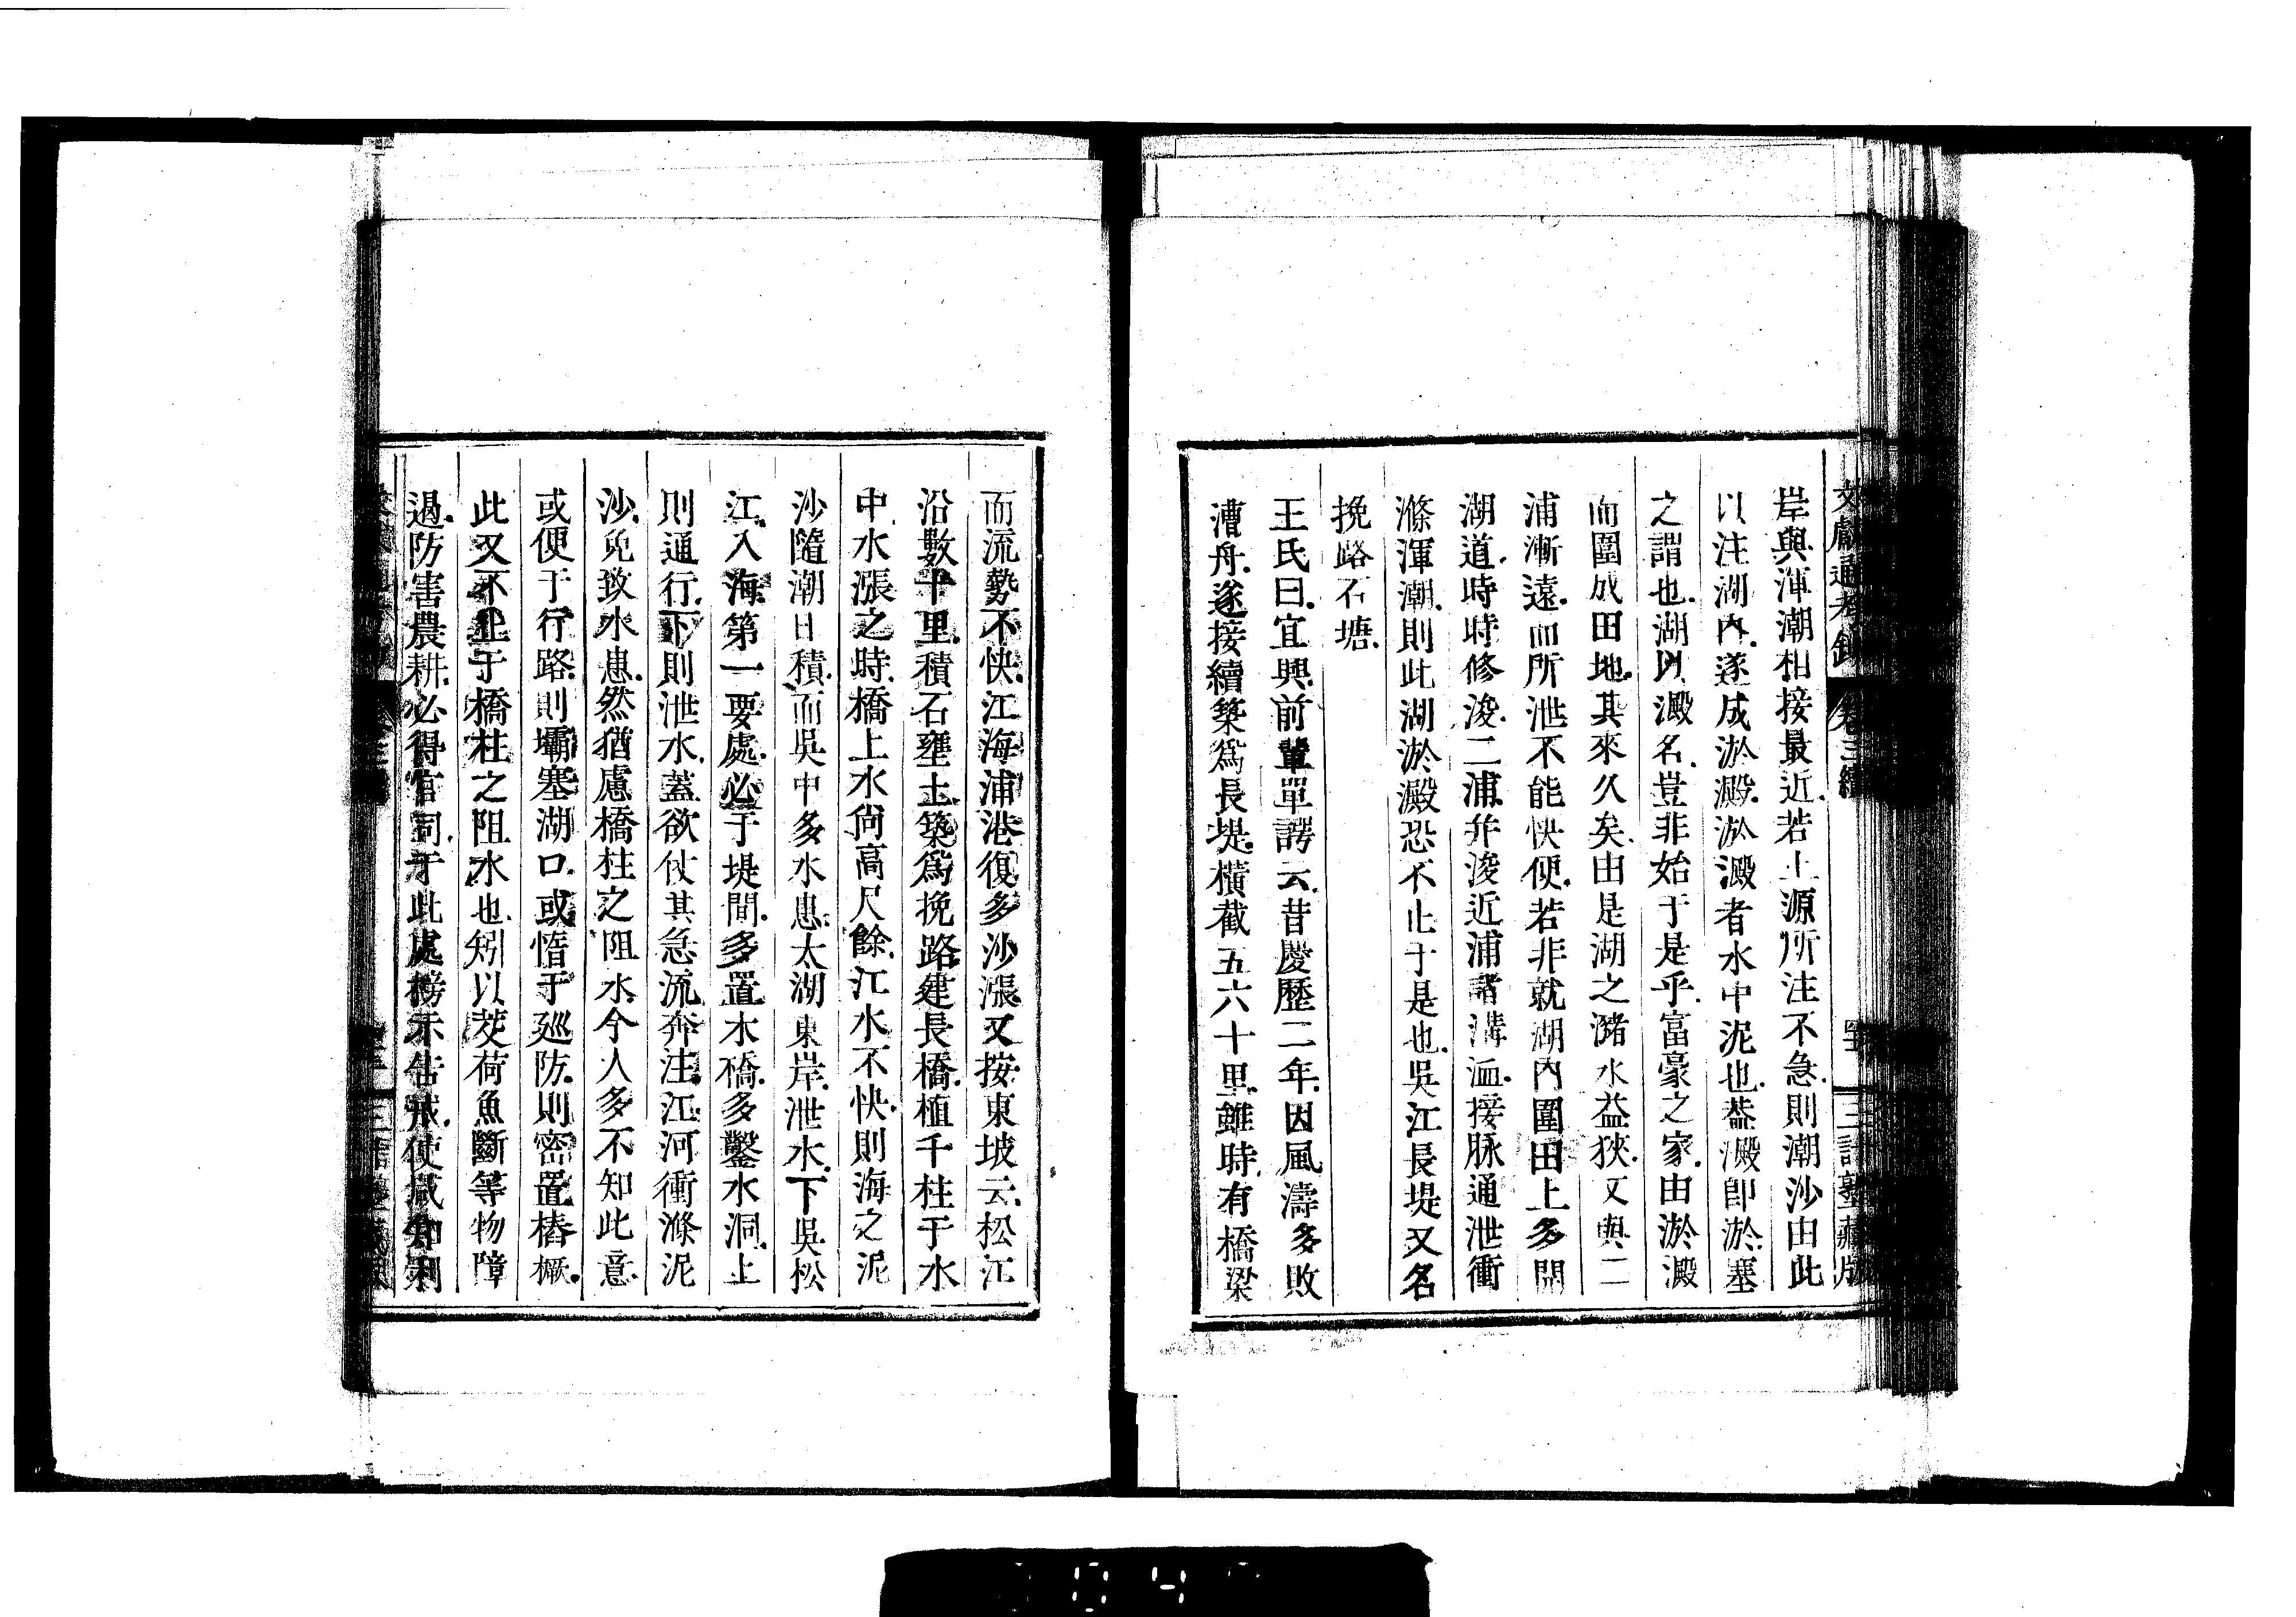 文獻通考鈔 卷三續 三訂塾藏版
岸與渾潮相接最近若上源所注不急則潮沙由此
以注湖內遂成淤澱淤澱者水中泥也葢澱卽淤塞
之謂也湖以澱名豈非始于是乎富豪之家由淤澱
而圍成田地其來久矣由是湖之瀦水益狹又與二
浦漸遠而所泄不能快便若非就湖內圍田上多開
湖道時時修浚二浦并浚近浦諸溝洫接脉通泄衝
滌渾潮則此湖淤澱恐不止于是也吳江長堤又名
挽路石塘
王氏曰宜興前輩單諤云昔慶歷二年因風濤多敗
漕舟遂接續築爲長堤橫截五六十里雖時有橋梁
而流勢不快江海浦港復多沙漲又按東坡云松江
沿數千里積石壅土築爲挽路建長橋植千柱于水
中水漲之時橋上水尙高尺餘江水不快則海之泥
沙隨潮日積而吳中多水患太湖東岸泄水下吳松
江入海第一要處必于堤間多置木橋多鑿水洞上
則通行下則泄水蓋欲仗其急流奔注江河衝滌泥
沙免致水患然猶慮橋柱之阻水今人多不知此意
或便于行路則壩塞湖口或惰于廵防則密置樁橛
此又不止于橋柱之阻水也矧以茭荷魚斷等物障
遏防害農耕必得官司于此處榜示告戒使咸知利